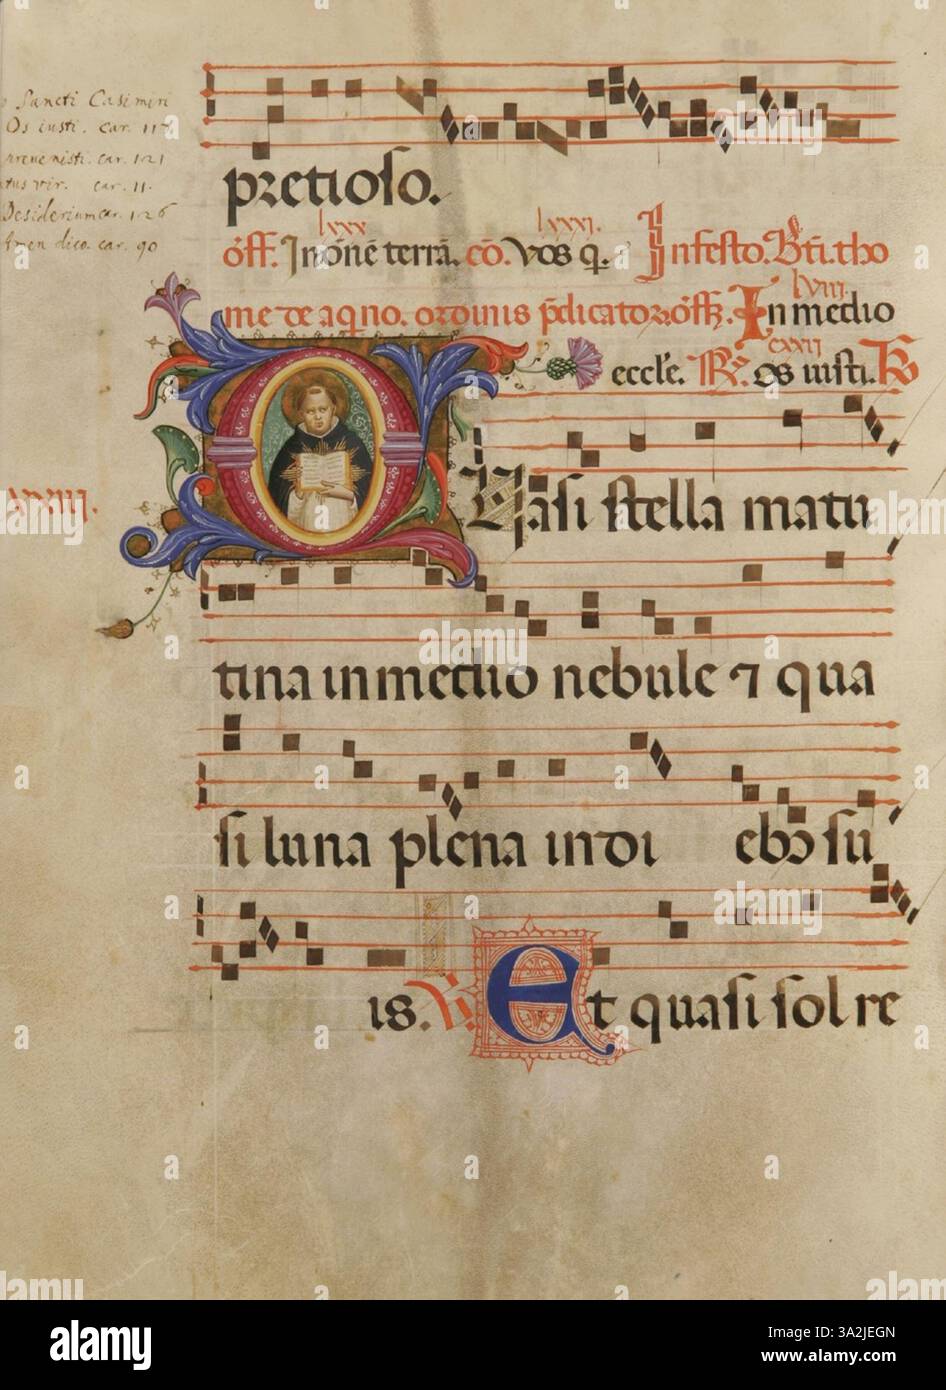 Sancti Casimiri
Os iusti. car. 11
car. 121
car. 11.
Desiderium car. 126
Amen dico car. 90
pretioso.
lxxx lxxxi.
off. In oīnē terrā. cō. Vos q. In festo. Bti. tho
me de aqino. ordinis p̄dicatoꝝ. off. In medio
lviii.
eccl'e. R. os iusti. V
cxxii
Quasi stella matu
XXIII.
tina in medio nebule ⁊ qua
si luna plena in di ebꝫ su
is. V. Et quasi sol re
alamy
Image ID: 3A2JEGN
www.alamy.com